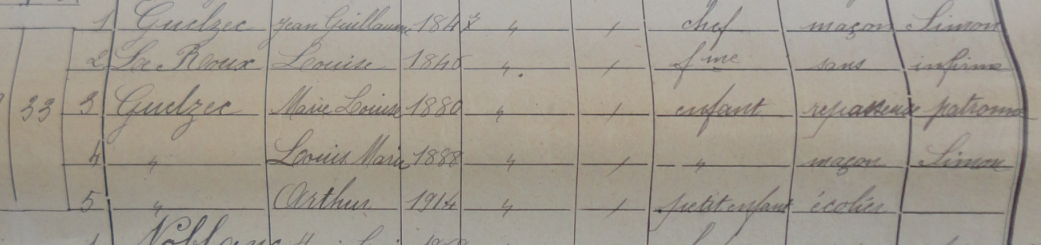 1 Guelzec Jean Guillaume 1847 " / chef maçon Simon
2 Le Roux Louise 1846 " / fme sans infirme
33 3 Guelzec Marie Louise 1880 " / enfant repasseuse patronne
4 " Louis Marie 1888 " / " maçon Simon
5 " Arthur 1914 " / petit enfant écolier
1